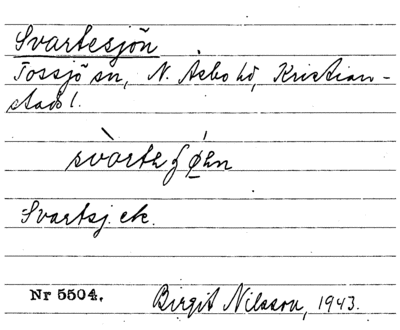 Svartesjön
Tossjö sn, N. Åsbo hd, Kristian-
stads l.
Svartsj. ek.
Nr 5504. Birgit Nilsson, 1943.